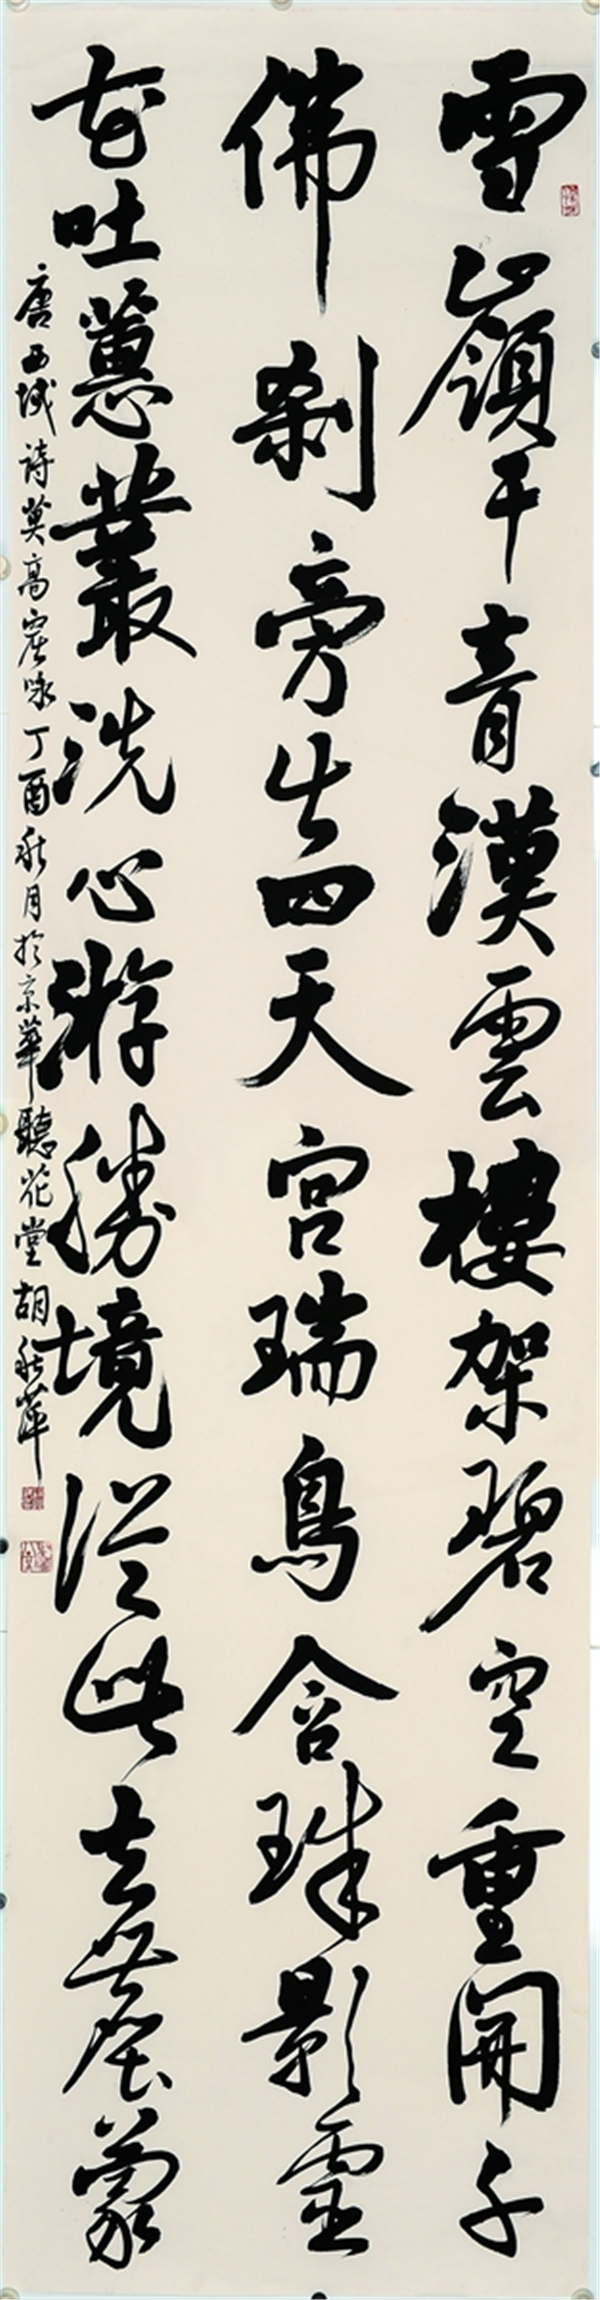 雪嶺干青漢雲樓架碧空重開千
佛刹旁出四天宮瑞鳥含珠影靈
花吐蕙叢洗心游勝境從此去塵蒙
唐西域詩莫高窟咏丁酉秋月於京華聽花堂胡秋萍